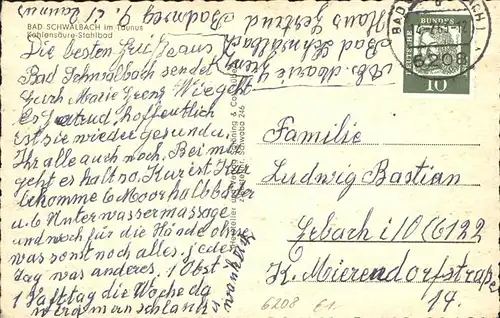 BAD SCHWALBACH im Taunus
Kohlensäure-Stahlbad
Die besten Grüße aus
Bad Schwalbach sendet
Euch Marie Grenz Wie geht
es Gertrud hoffentlich
ist sie wieder gesund u.
Ihr alle auch noch. Bei mir
geht es halt so. Kur ist Kur
bekomme 6 Moorhalbbäder
u. 6 Unterwassermassage
und noch für die Hände ohne
was sonst noch alles. jeden
Tag was anderes. 1 Obst
1 Safttag die Woche da
wird man schlank
Abs. Marie Grenz
Bad Schwalbach
Haus Gertrud
DEUTSCHE BUNDESPOST
10
BAD SCHWALBACH 1
6208
Familie
Ludwig Bastian
Erbach i/O (6122
K. Mierendorfstraße
14.
6208